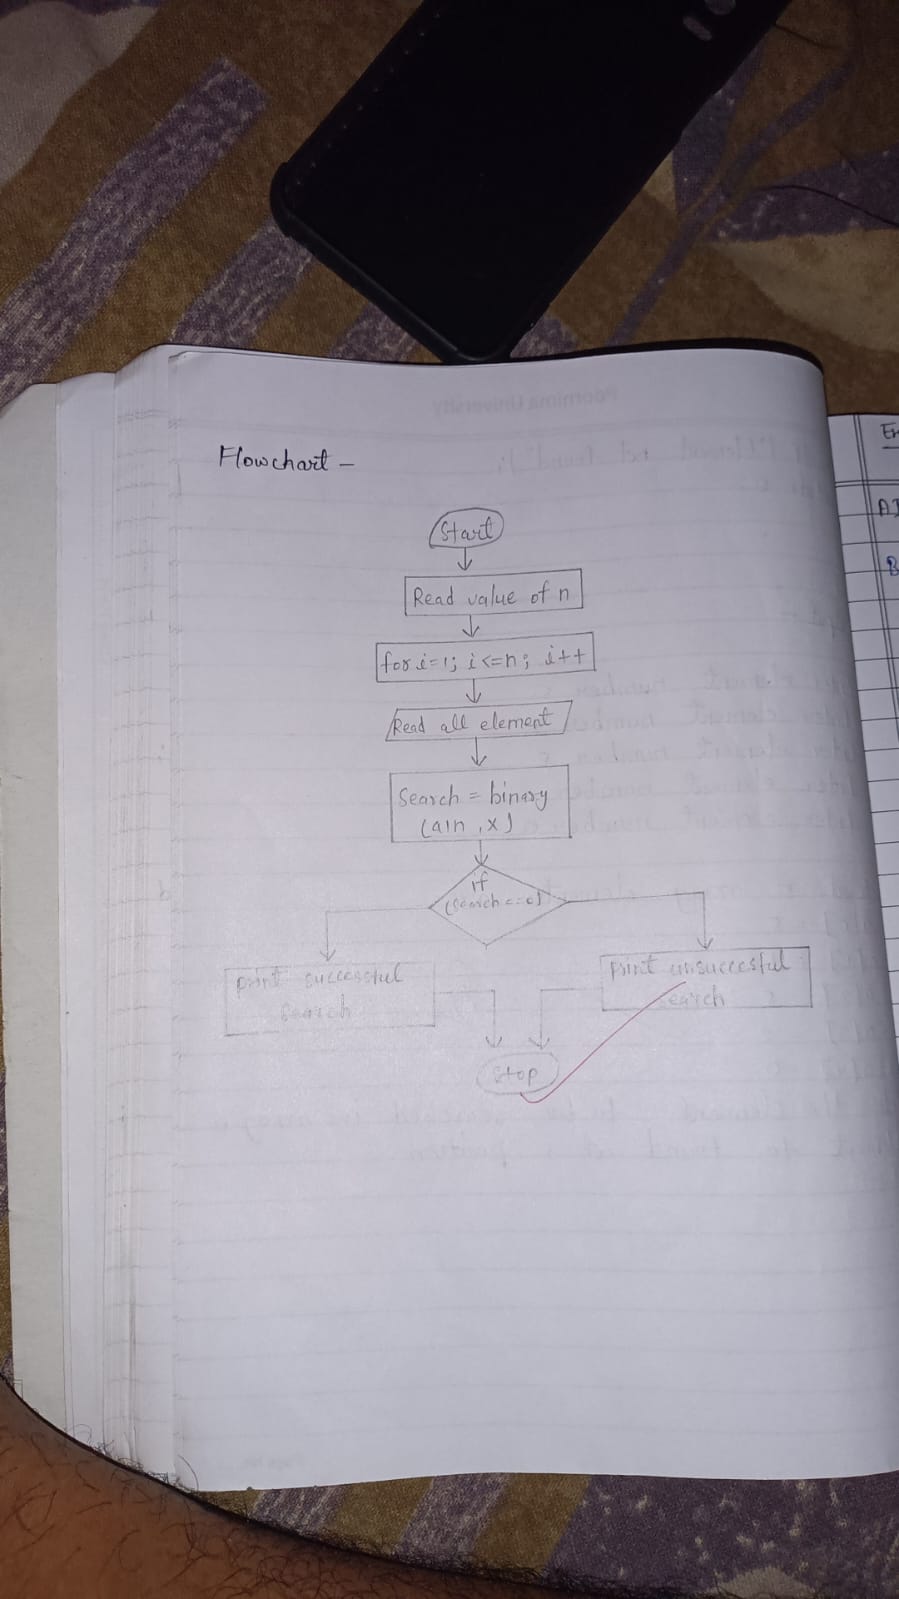 Flowchart -
Start
Read value of n
for i=1; i<=n; i++
Read all element
Search = binary
(a1n, x)
if
print successful
search
print unsuccesful
search
Stop